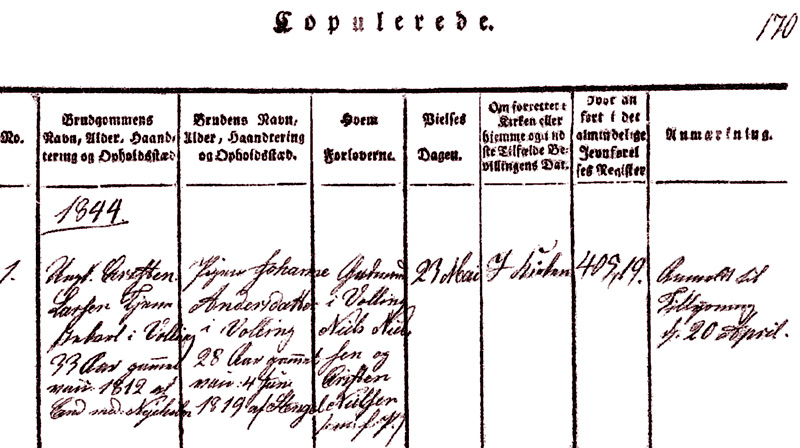 Kopulerede.
170
No.
Brudgommens
Navn, Alder, Haand-
tering og Opholdsstæd
Brudens Navn,
Alder, Haandtering
og Opholdsstæd.
Hvem
Forloverne.
Vielses
Dagen.
Om forrettet i
Kirken eller
hjemme og i sid
ste Tilfælde Be-
villingens Dat.
Hvor an
ført i det
almindelige
Jevnførel
ses Register
Anmærkning.
1844.
1.
Ungk. Cresten
Larsen Tjene
stekarl i Volling
33 Aar gammel
vacc. 1812 af
Pigen Johanne
Andersdatter
i Volling
28 Aar gammel
vacc. 4 Juni
1819 af
i Volling
Niels Niel
sen og
Cresten
Nielsen
23 Mai
I Kirken
405, 19.
Anmeldt til
d. 20 April.